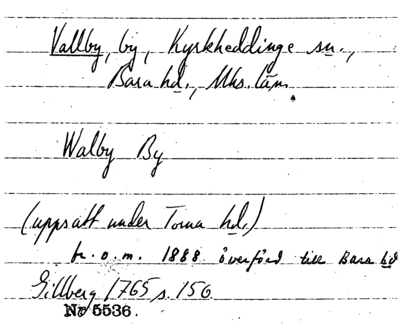 Vallby, by, Kyrkheddinge sn.,
Bara hd., Mhs. län.
Walby By
(uppsatt under Torna hd.)
fr. o. m. 1888 överförd till Bara hd
Gillberg 1765 s. 156
No 5536.